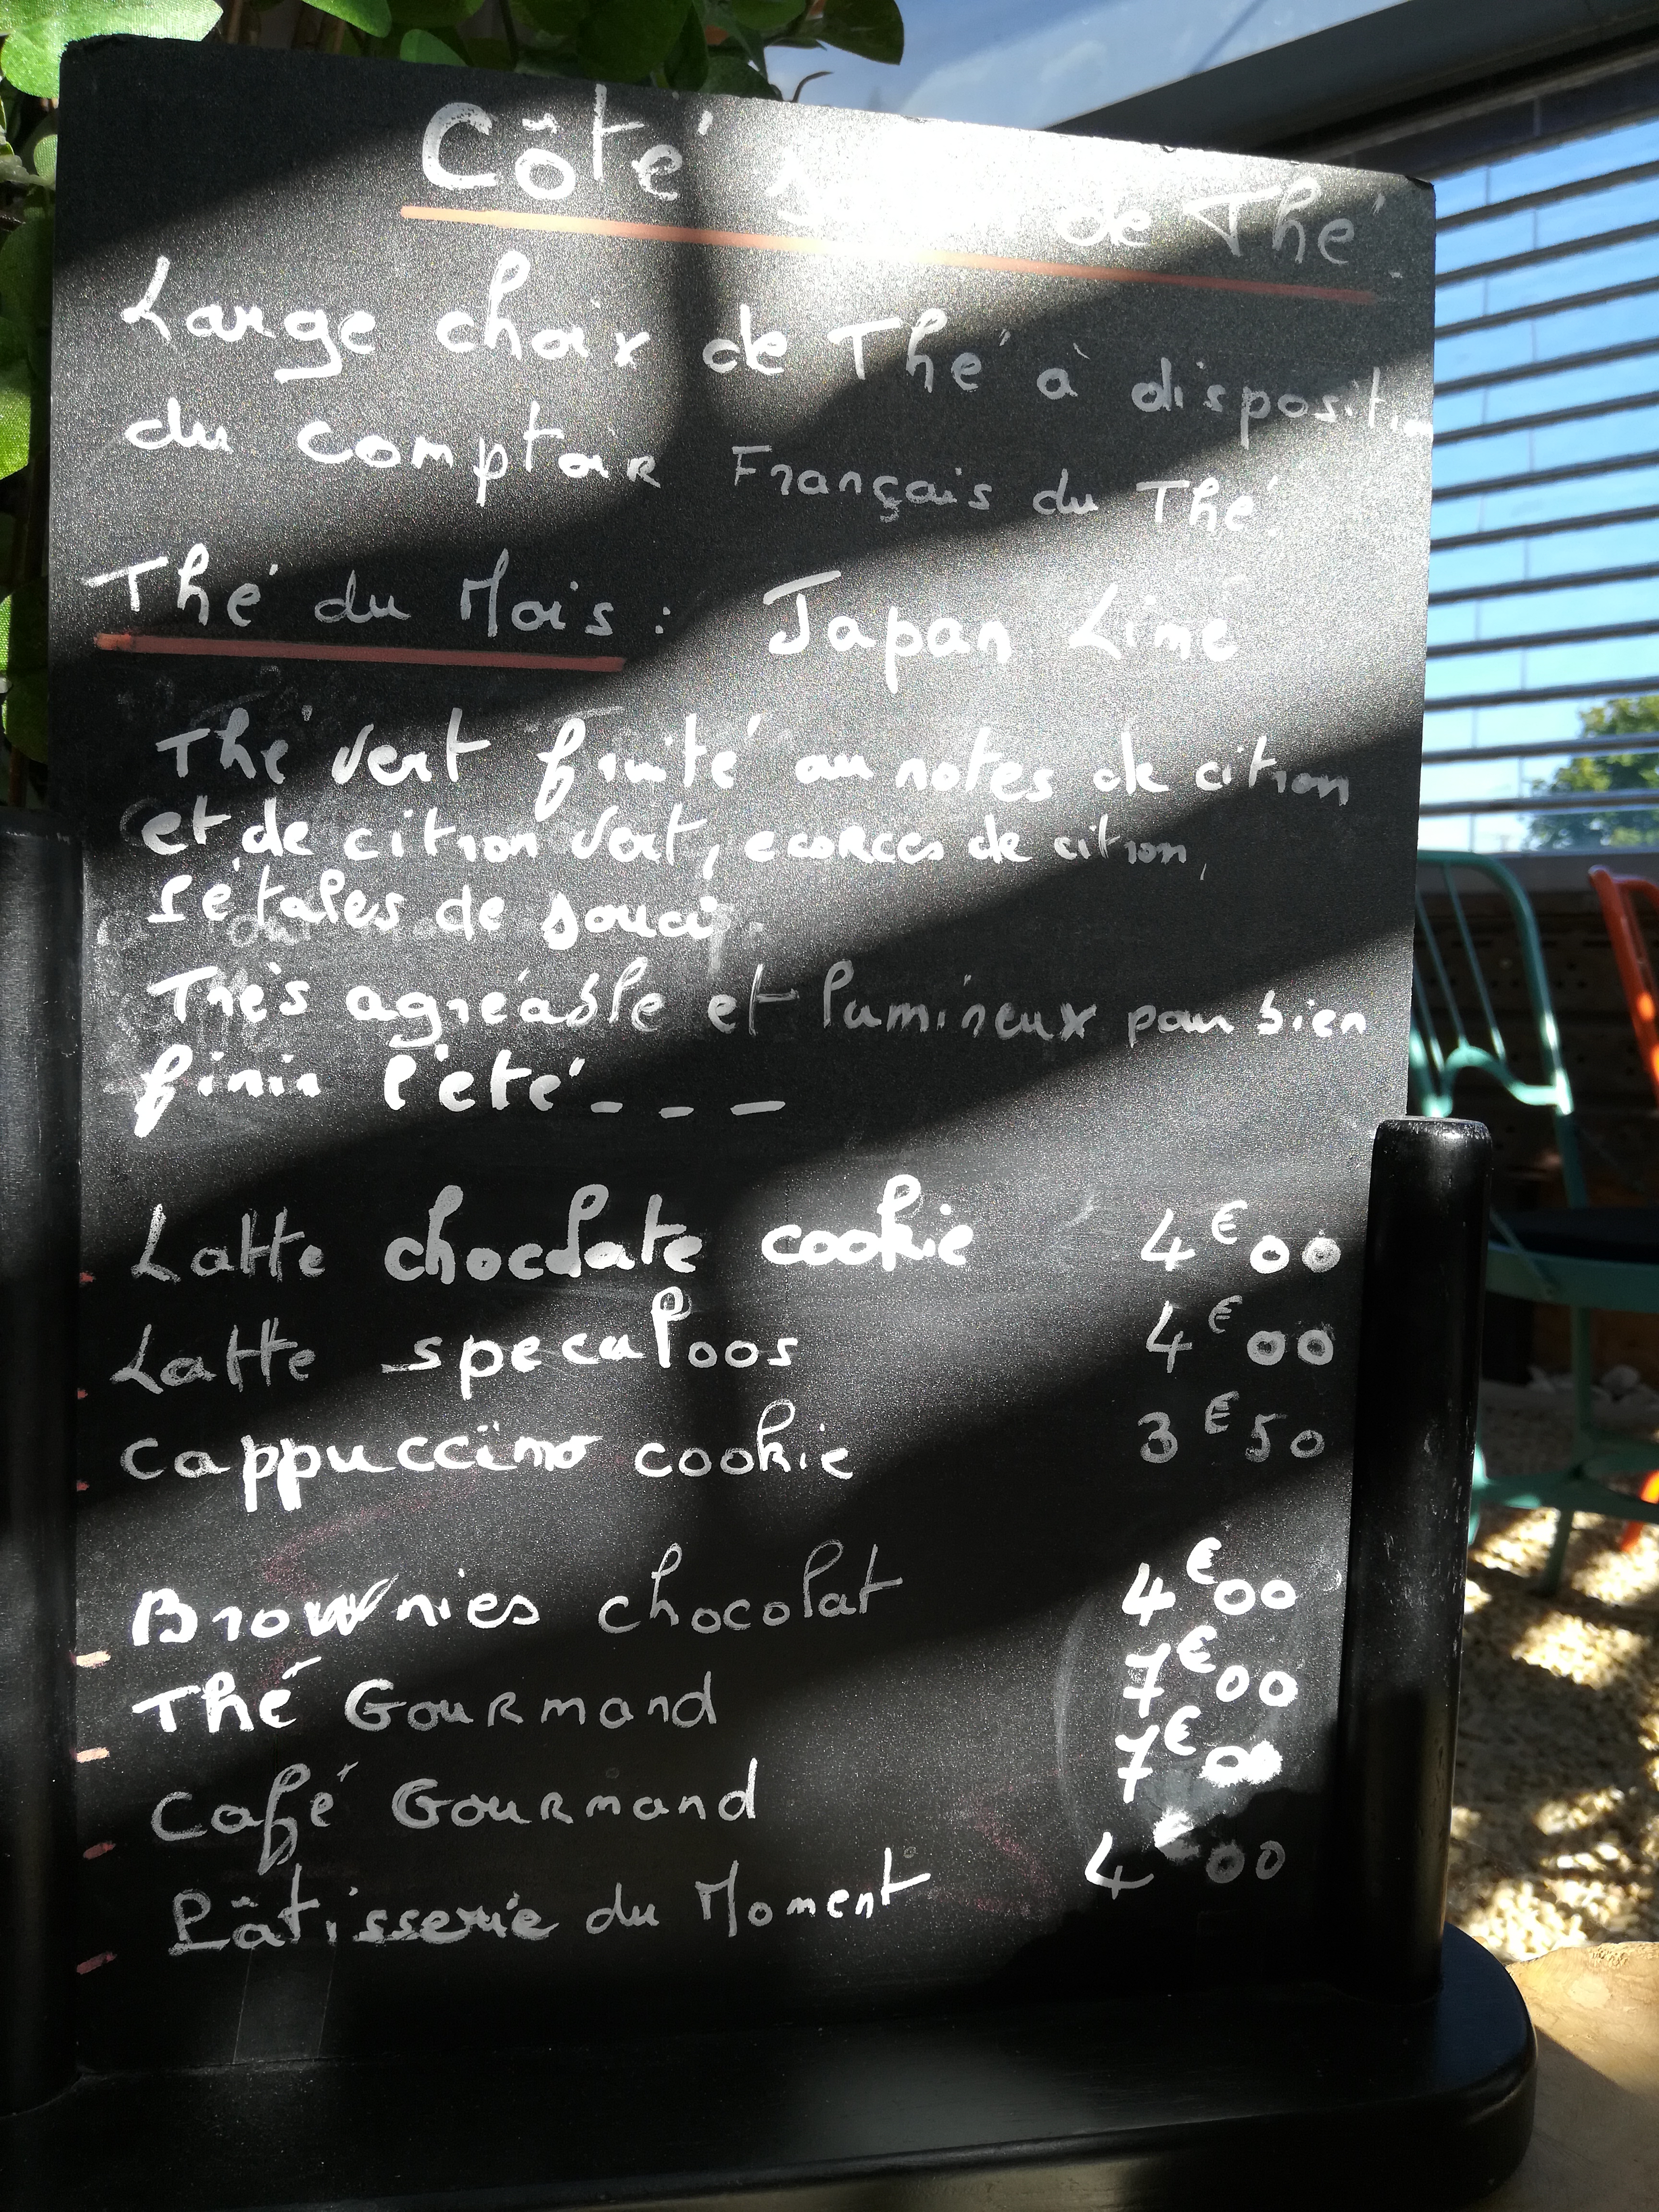 Côté de Thé
Large choix de Thé à disposition
du comptoir Français du Thé.
Thé du Mois : Japan Lime
Thé vert fruité au notes de citron
et de citron vert, ecorces de citron,
Pétales de souci.
Très agréable et lumineux pour bien
finir l'été - - -
Latte chocolate cookie 4€00
Latte specaloos 4€00
cappuccino cookie 3€50
Brownies chocolat 4€00
Thé Gourmand 7€00
Café Gourmand 7€00
Pâtisserie du Moment 4€00